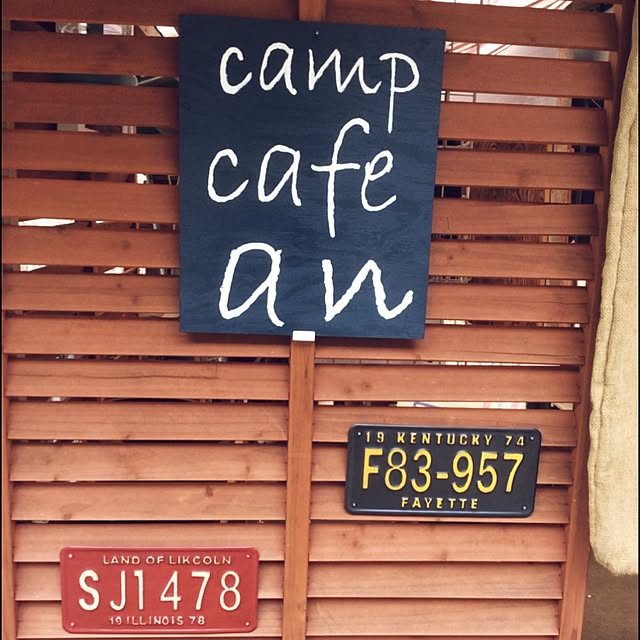 camp
cafe
an
19 KENTUCKY 74
F83-957
FAYETTE
LAND OF LIKCOLN
SJ1478
19 ILLINOIS 78